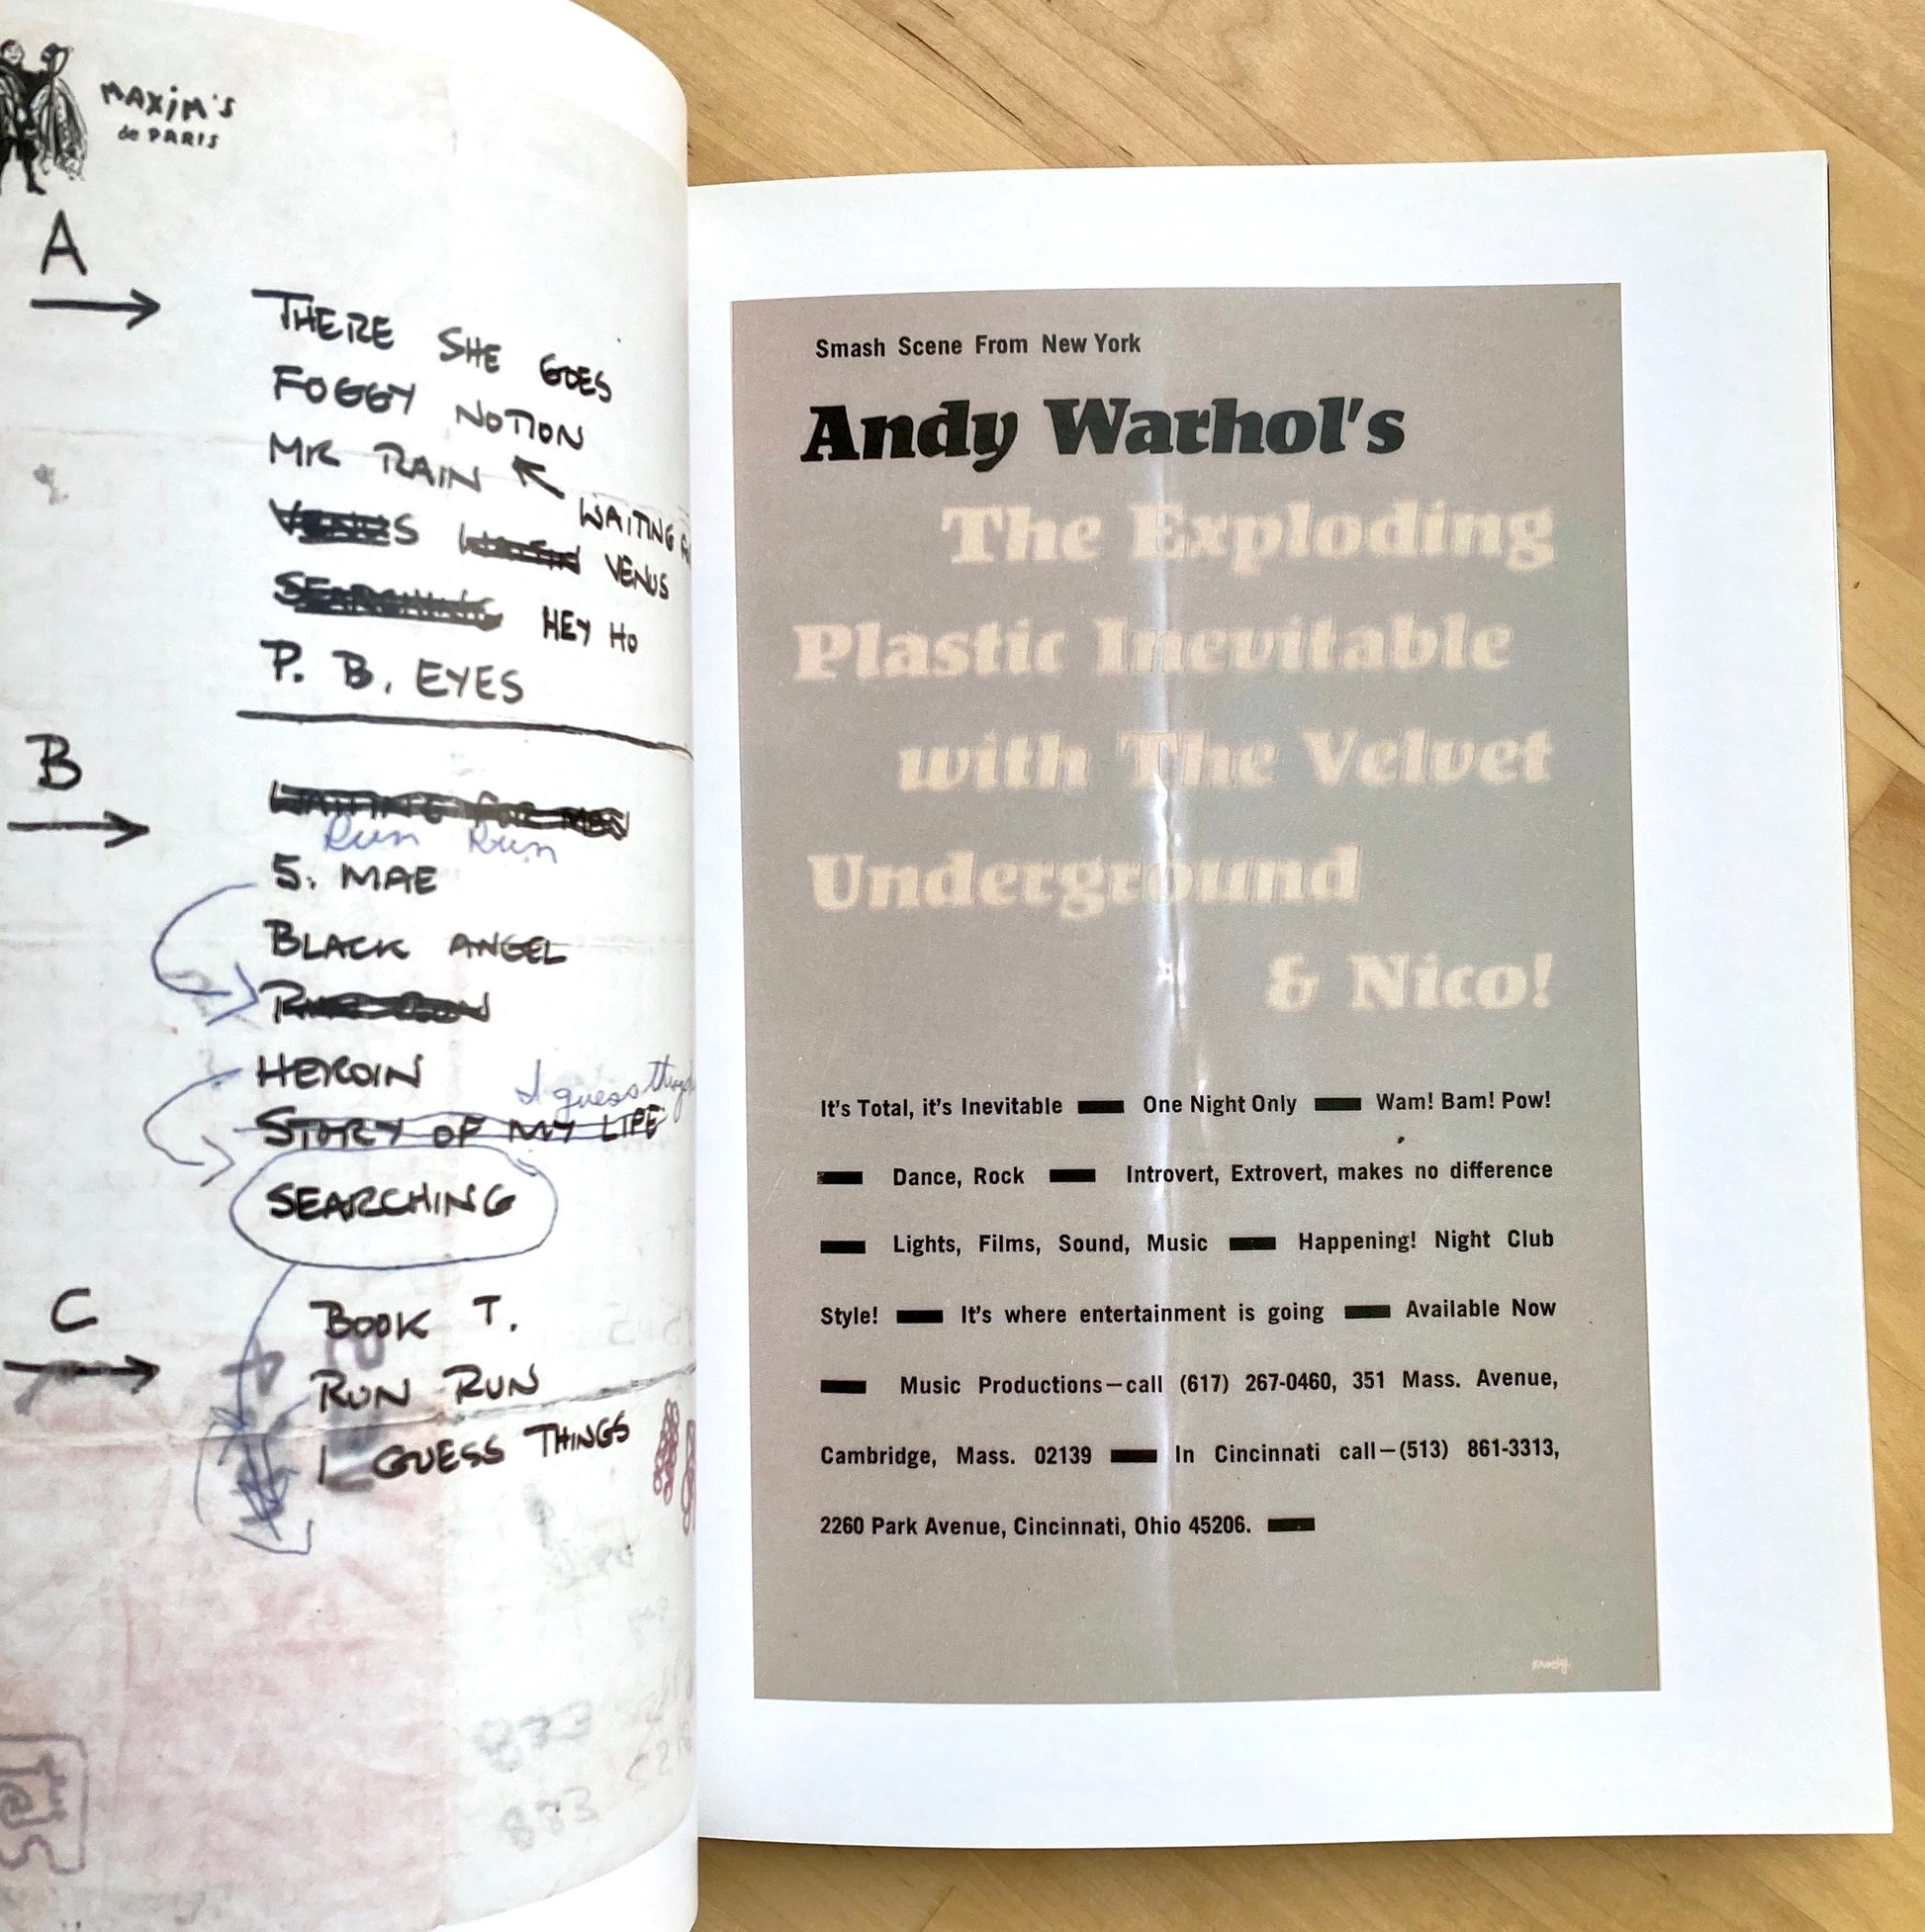 MAXIM'S
de PARIS
A
THERE SHE GOES
FOGGY NOTION
MR RAIN
WAITING
VENUS VENUS
SEARCHING HEY HO
P. B. EYES
B
WAITING FOR MAN
Run Run
S. MAE
BLACK ANGEL
HEROIN
I guess
STORY OF MY LIFE
SEARCHING
C
BOOK T.
RUN RUN
I GUESS THINGS
833
883
Smash Scene From New York
Andy Warhol's
The Exploding
Plastic Inevitable
with The Velvet
Underground
& Nico!
It's Total, it's Inevitable — One Night Only — Wam! Bam! Pow!
— Dance, Rock — Introvert, Extrovert, makes no difference
— Lights, Films, Sound, Music — Happening! Night Club
Style! — It's where entertainment is going — Available Now
— Music Productions—call (617) 267-0460, 351 Mass. Avenue,
Cambridge, Mass. 02139 — In Cincinnati call—(513) 861-3313,
2260 Park Avenue, Cincinnati, Ohio 45206. —